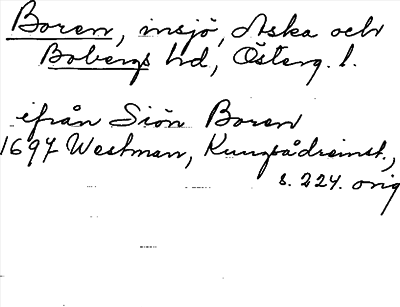 Boren, insjö, Aska och
Bobergs hd, Österg. l.
ifrån Siön Boren
1697 Westman, Kungsådreinst.,
s. 224. orig